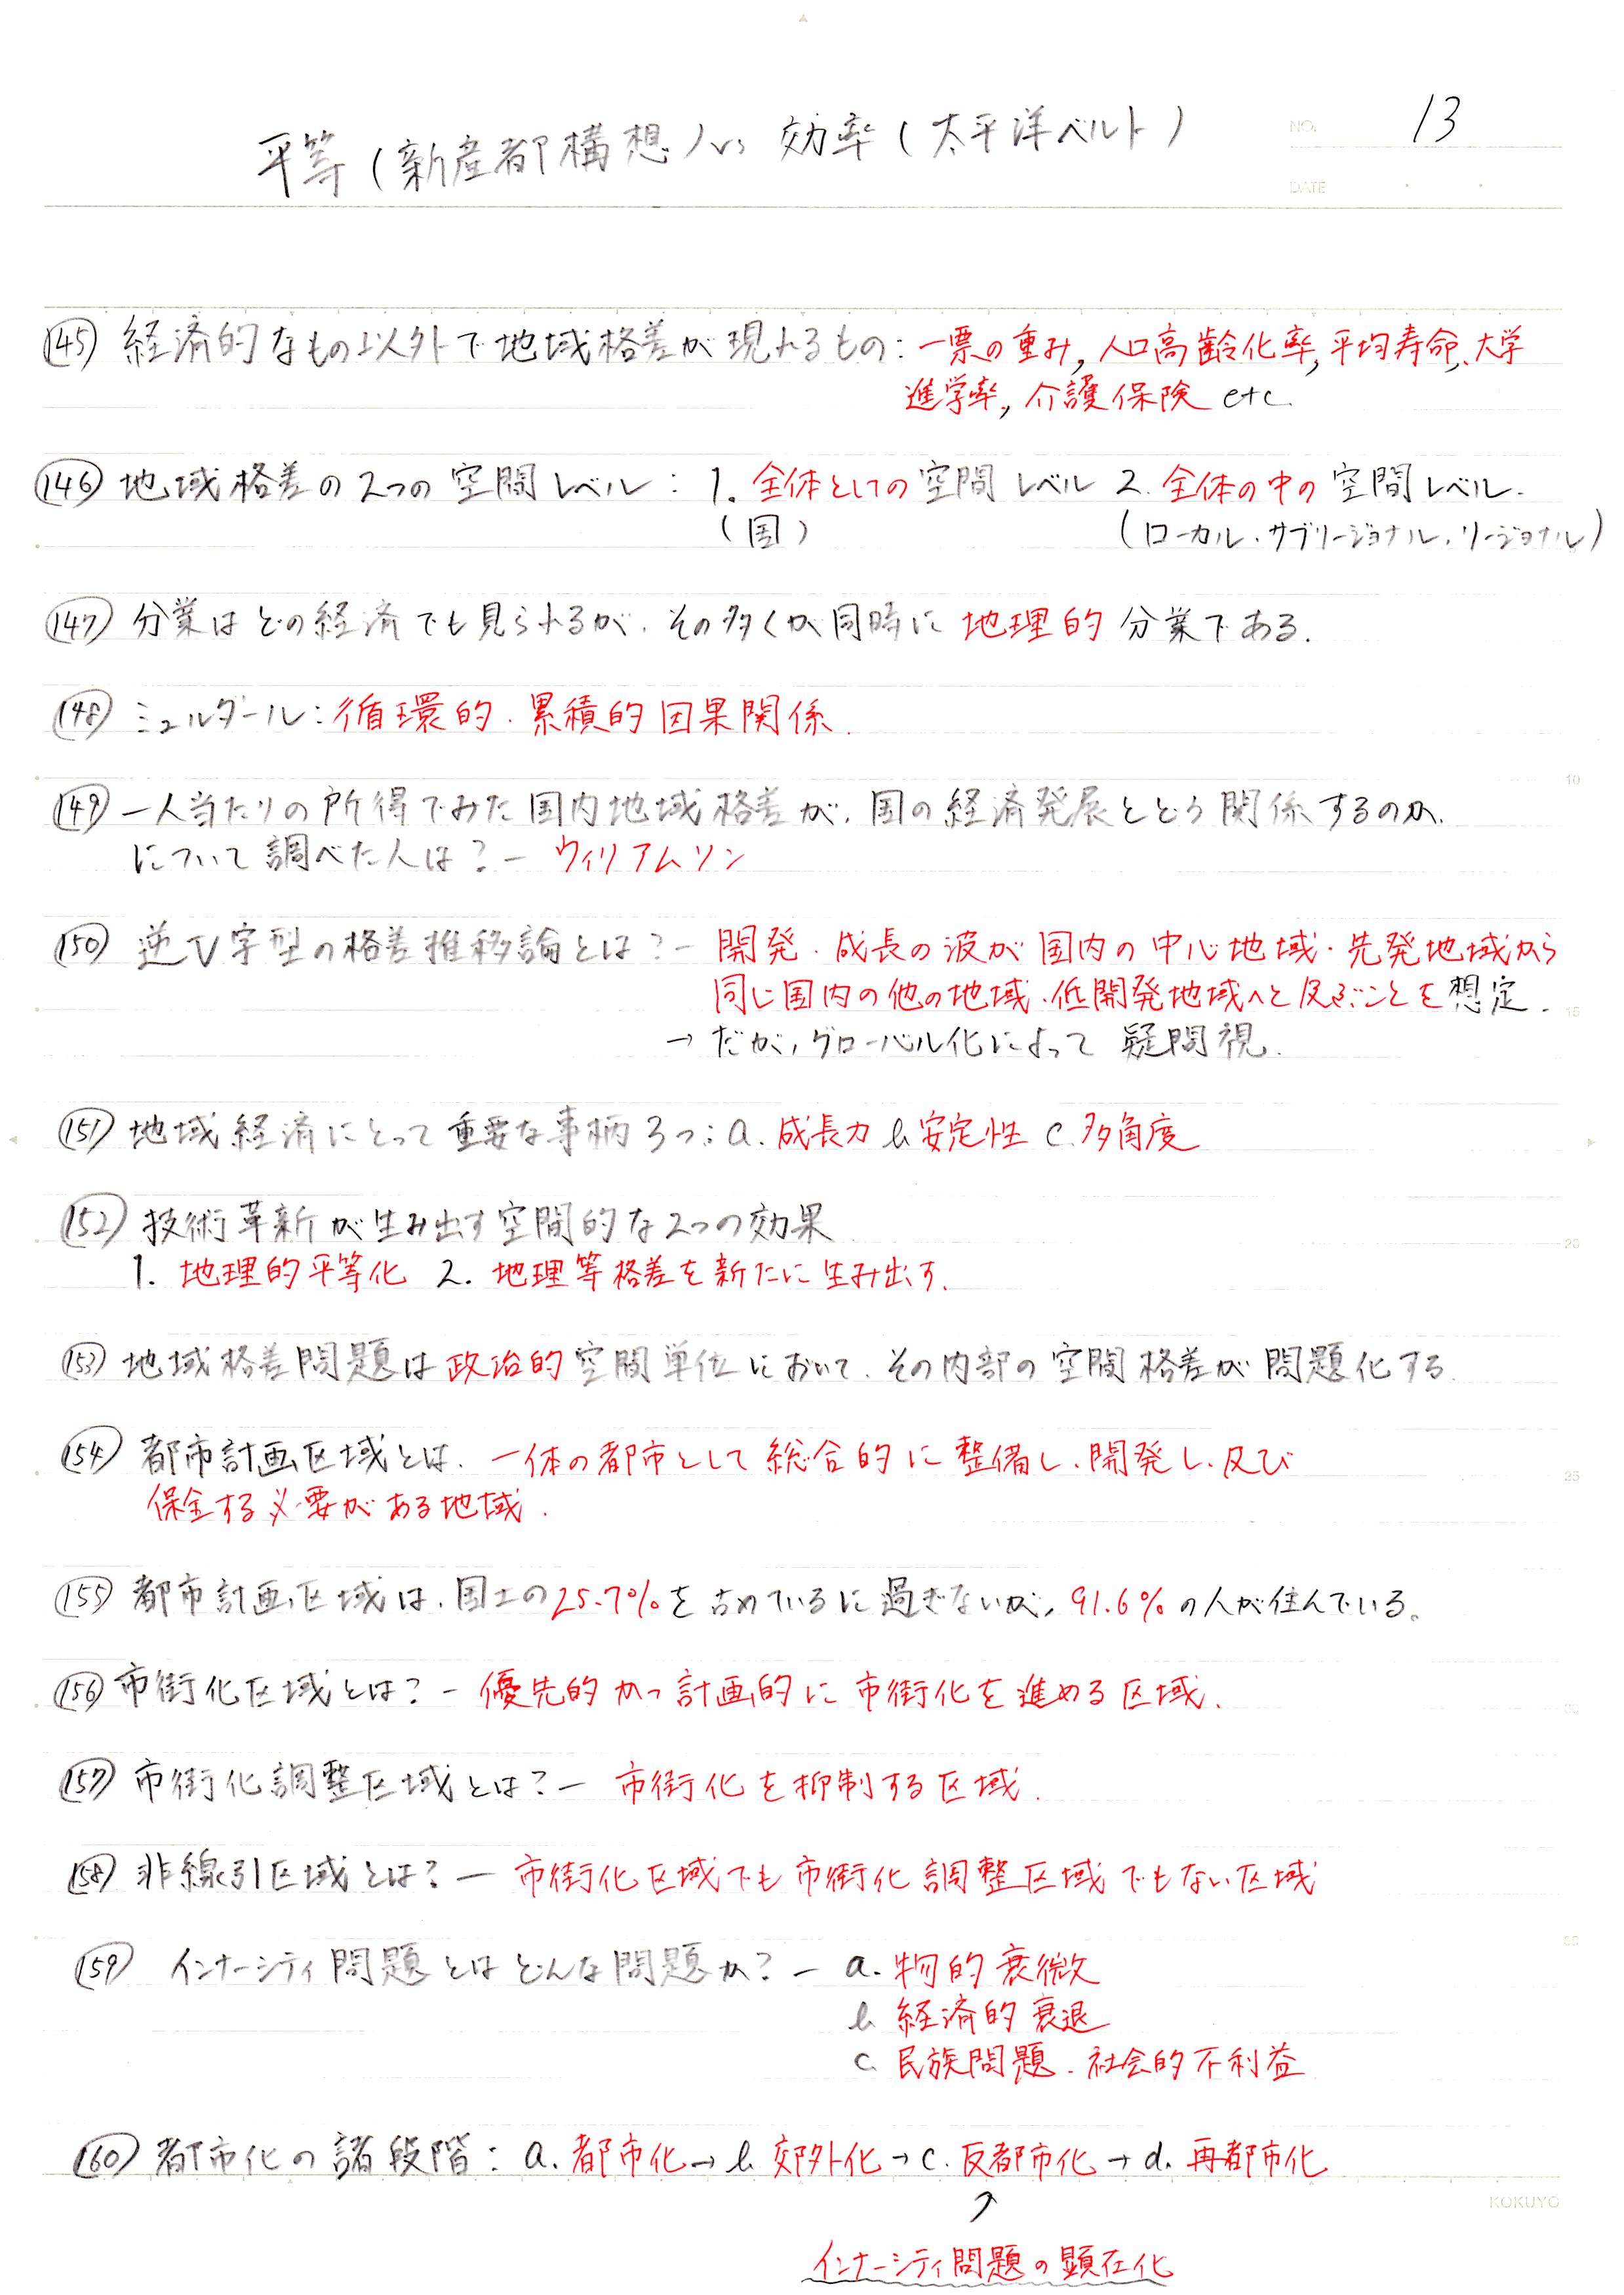 13
NO.
平等(新産都構想)vs 効率(太平洋ベルト)
DATE
145 経済的なもの以外で地域格差が現れるもの:一票の重み,人口高齢化率,平均寿命、大学
進学率,介護保険 etc.
146 地域格差の2つの空間レベル: 1. 全体としての空間レベル 2. 全体の中の空間レベル.
(国) (ローカル・サブリージョナル・リージョナル)
147 分業はどの経済でも見られるが、その多くが同時に地理的分業である.
148 ミュルダール:循環的・累積的因果関係.
10
149 一人当たりの所得でみた国内地域格差が、国の経済発展とどう関係するのか、
について調べた人は?ー ウィリアムソン
150 逆V字型の格差推移論とは?ー 開発・成長の波が国内の中心地域・先発地域から
同じ国内の他の地域・低開発地域へと及ぶことを想定.
15
→ だが,グローバル化によって疑問視.
151 地域経済にとって重要な事柄3つ: a. 成長力 b. 安定性 c. 多角度
152 技術革新が生み出す空間的な2つの効果
20
1. 地理的平等化 2. 地理等格差を新たに生み出す.
153 地域格差問題は政治的空間単位において、その内部の空間格差が問題化する.
154 都市計画区域とは、一体の都市として総合的に整備し、開発し、及び
25
保全する必要がある地域.
155 都市計画区域は、国土の25.7%を占めているに過ぎないが, 91.6%の人が住んでいる。
156 市街化区域とは?ー 優先的かつ計画的に市街化を進める区域.
30
157 市街化調整区域とは?ー 市街化を抑制する区域.
158 非線引区域とは?ー 市街化区域でも市街化調整区域でもない区域
35
159 インナーシティ問題とはどんな問題か?ー a. 物的衰微
b. 経済的衰退
c. 民族問題・社会的不利益
160 都市化の諸段階: a. 都市化→b. 郊外化→c. 反都市化→d. 再都市化
KOKUYO
↗
インナーシティ問題の顕在化